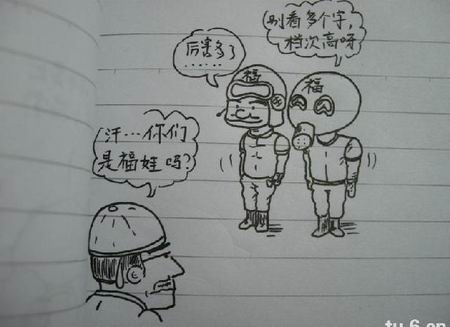 别看多个字，
档次高呀
厉害多了
……
福
福
汗…你们
是福娃吗?
tu.6.cn